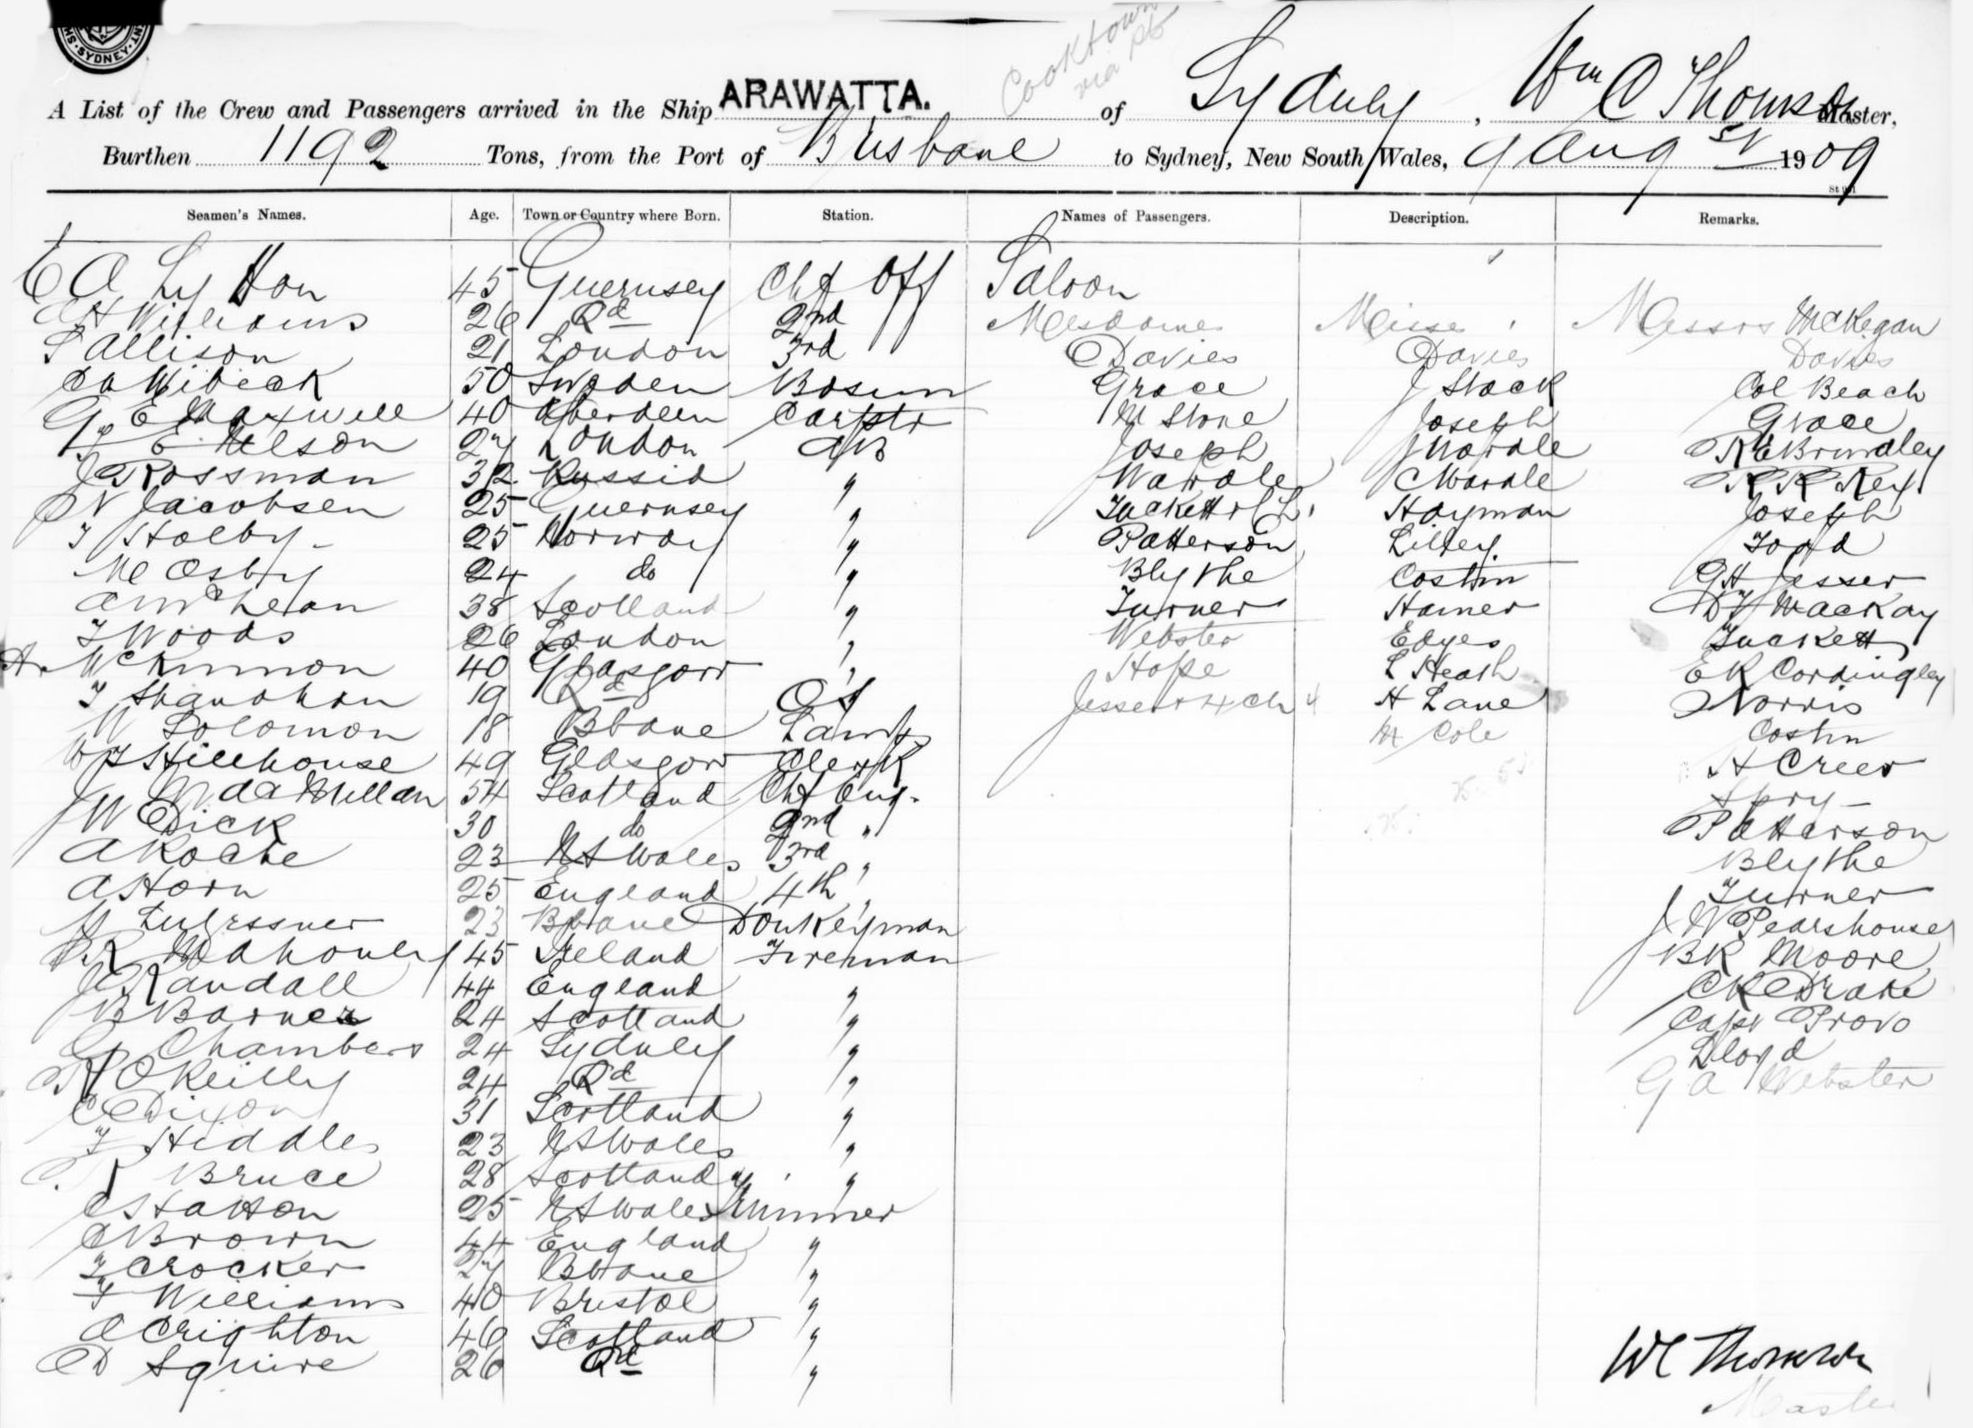 SYDNEY
Cooktown
via pts
A List of the Crew and Passengers arrived in the Ship ARAWATTA. of Sydney, Wm C Thomson Master,
Burthen 1192 Tons, from the Port of Brisbane to Sydney, New South Wales, 9 Augst 1909
Seamen's Names. Age. Town or Country where Born. Station. Names of Passengers. Description. Remarks.
45 Guernsey Chf Off Saloon
E H Williams 26 Qd 2nd Mesdames Misses Messrs McKegan
S Allison 21 London 3rd Davies Davies Davies
50 Sweden Bosun Grace J Stack Col Beach
G E Maxwell 40 Aberdeen Carptr M Stone Joseph Grace
E Nelson 27 London AB Joseph J Wardle R E Brindley
J Rossman 32 Russia " Wardle C Wardle R R Key
N Jacobsen 25 Guernsey " Tuckett & Ch. Hayman Joseph
T Holby 25 Norway " Patterson Lilley Todd
M Osby 24 do " Blythe Costin G H Jesser
A McLean 38 Scotland " Turner Hamer D J Mackay
T Woods 26 London " Webster Edges Tuckett
A. McKinnon 40 Glasgow " Hope L Heath E R Cordingley
T Shanahan 19 Qd OS Jesser & 4 Ch 4 H Lane Norris
W Solomon 18 Bbane Lamps M Cole Costin
W J Hillhouse 49 Glasgow Clerk H Creer
J W MacMillan 54 Scotland Chf Eng. Spry
W Dick 30 do 2nd " Patterson
A Roche 23 N S Wales 3rd " Blythe
A Horn 25 England 4th " Turner
23 Bbane Donkeyman J W Pearshouse
R Mahoney 45 Ireland Fireman B R Moore
J Randall 44 England " C R Drake
B Barnes 24 Scotland " Capt Provo
G Chambers 24 Sydney " Lloyd
R O'Keilly 24 Qd " G A Webster
C Dixon 31 Scotland "
F Hiddles 23 N S Wales "
R Bruce 28 Scotland "
C Hatton 25 N S Wales Trimmer
C Brown 44 England "
F Crocker 27 Bbane "
F Williams 40 Bristol "
A Crighton 46 Scotland "
D Squire 26 Qd "
W C Thomson
Master